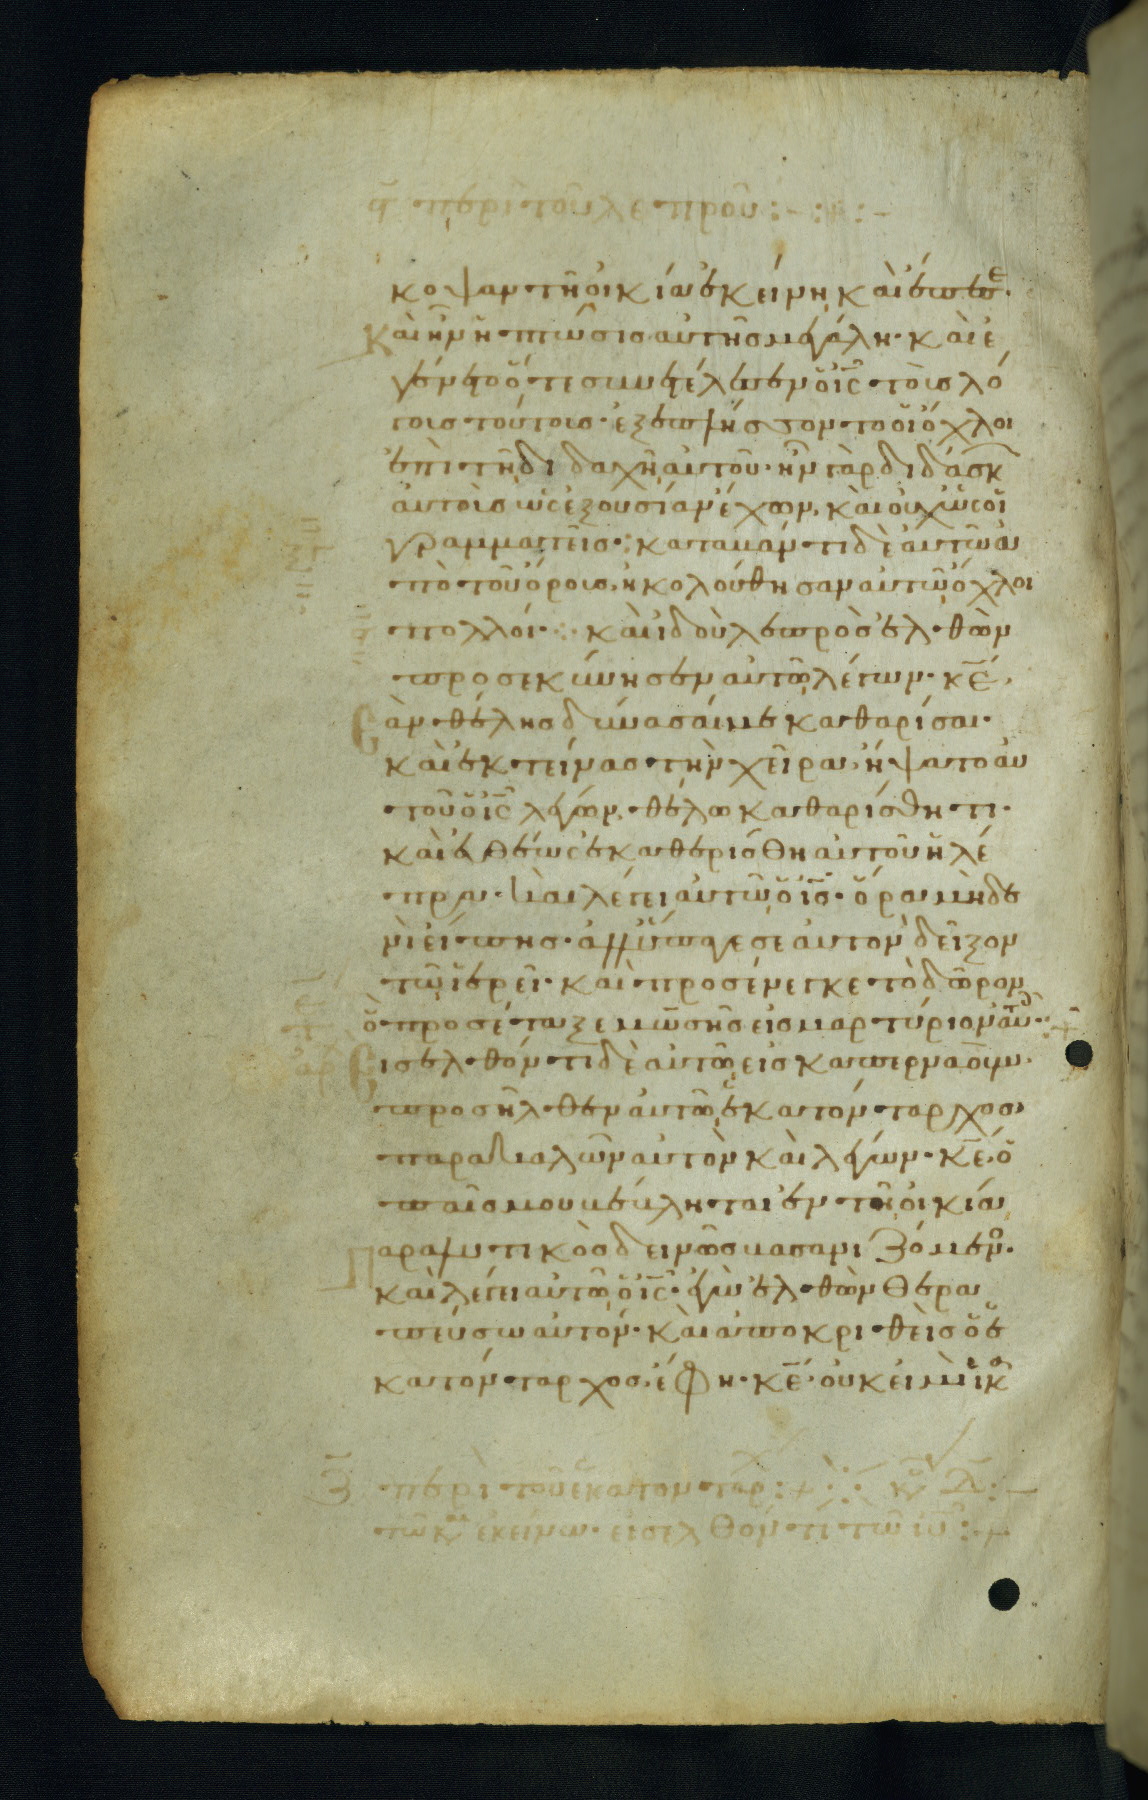 ϛ περὶ τοῦ λεπροῦ :- :+: -
κοψαν τῆ οἰκία ἐκείνη, καὶ ἔπεσε.
Καὶ ἦν ἡ πτῶσις αὐτῆς μεγάλη. καὶ ἐ
γένετο ὅτε συνετέλεσεν ὁ ις̅ τοὺς λό
γους τούτους. ἐξεπλήσσοντο οἱ ὄχλοι
ἐπὶ τῆ διδαχῆ αὐτοῦ. ἦν γὰρ διδάσκ
αὐτοὺς ὡς ἐξουσίαν ἔχων, καὶ οὐχ ὡς οἱ
γραμματεῖς : καταβάντι δὲ αὐτῶ ἀ
πὸ τοῦ ὄρους, ἠκολούθησαν αὐτῶ ὄχλοι
πολλοί · : καὶ ἰδοὺ λεπρὸς ἐλθὼν
προσεκύνησεν αὐτῶ λέγων. κ̅ε̅,
Ἐὰν θέλης δύνασαί με καθαρίσαι.
καὶ ἐκτείνας τὴν χεῖρα, ἥψατο αὐ
τοῦ ὁ ις̅ λέγων, θέλω καθαρίσθητι.
καὶ εὐθέως ἐκαθερίσθη αὐτοῦ ἡ λέ
πρα. καὶ λέγει αὐτῶ ὁ ις̅. ὅρα μηδε
νὶ εἴπης. ἀλλ' ὕπαγε σεαυτὸν δεῖξον
τῶ ἱερεῖ. καὶ προσένεγκε τὸ δῶρον
ὃ προσέταξε μωσῆς εἰς μαρτύριον αὐτοῖς · : +
Εἰσελθόντι δὲ αὐτῶ εἰς καπερναούμ.
προσῆλθεν αὐτῶ ἑκατόνταρχος
παρακαλῶν αὐτὸν καὶ λέγων. κ̅ε̅, ὁ
παῖς μου βέβληται ἐν τῆ οἰκία
Παραλυτικὸς δεινῶς βασανιζόμενο.
καὶ λέγει αὐτῶ ὁ ις̅. ἐγὼ ἐλθὼν θερα
πεύσω αὐτόν. καὶ ἀποκριθεὶς ὁ ἑ
κατόνταρχος, ἔφη. κ̅ε̅. οὐκ εἰμὶ ἱκ
ζ περὶ τοῦ ἑκατοντάρ : + : κυ δ̅ : -
τῶ κ ἐκείνω. εἰσελθόντι τῶ ιυ̅ : -